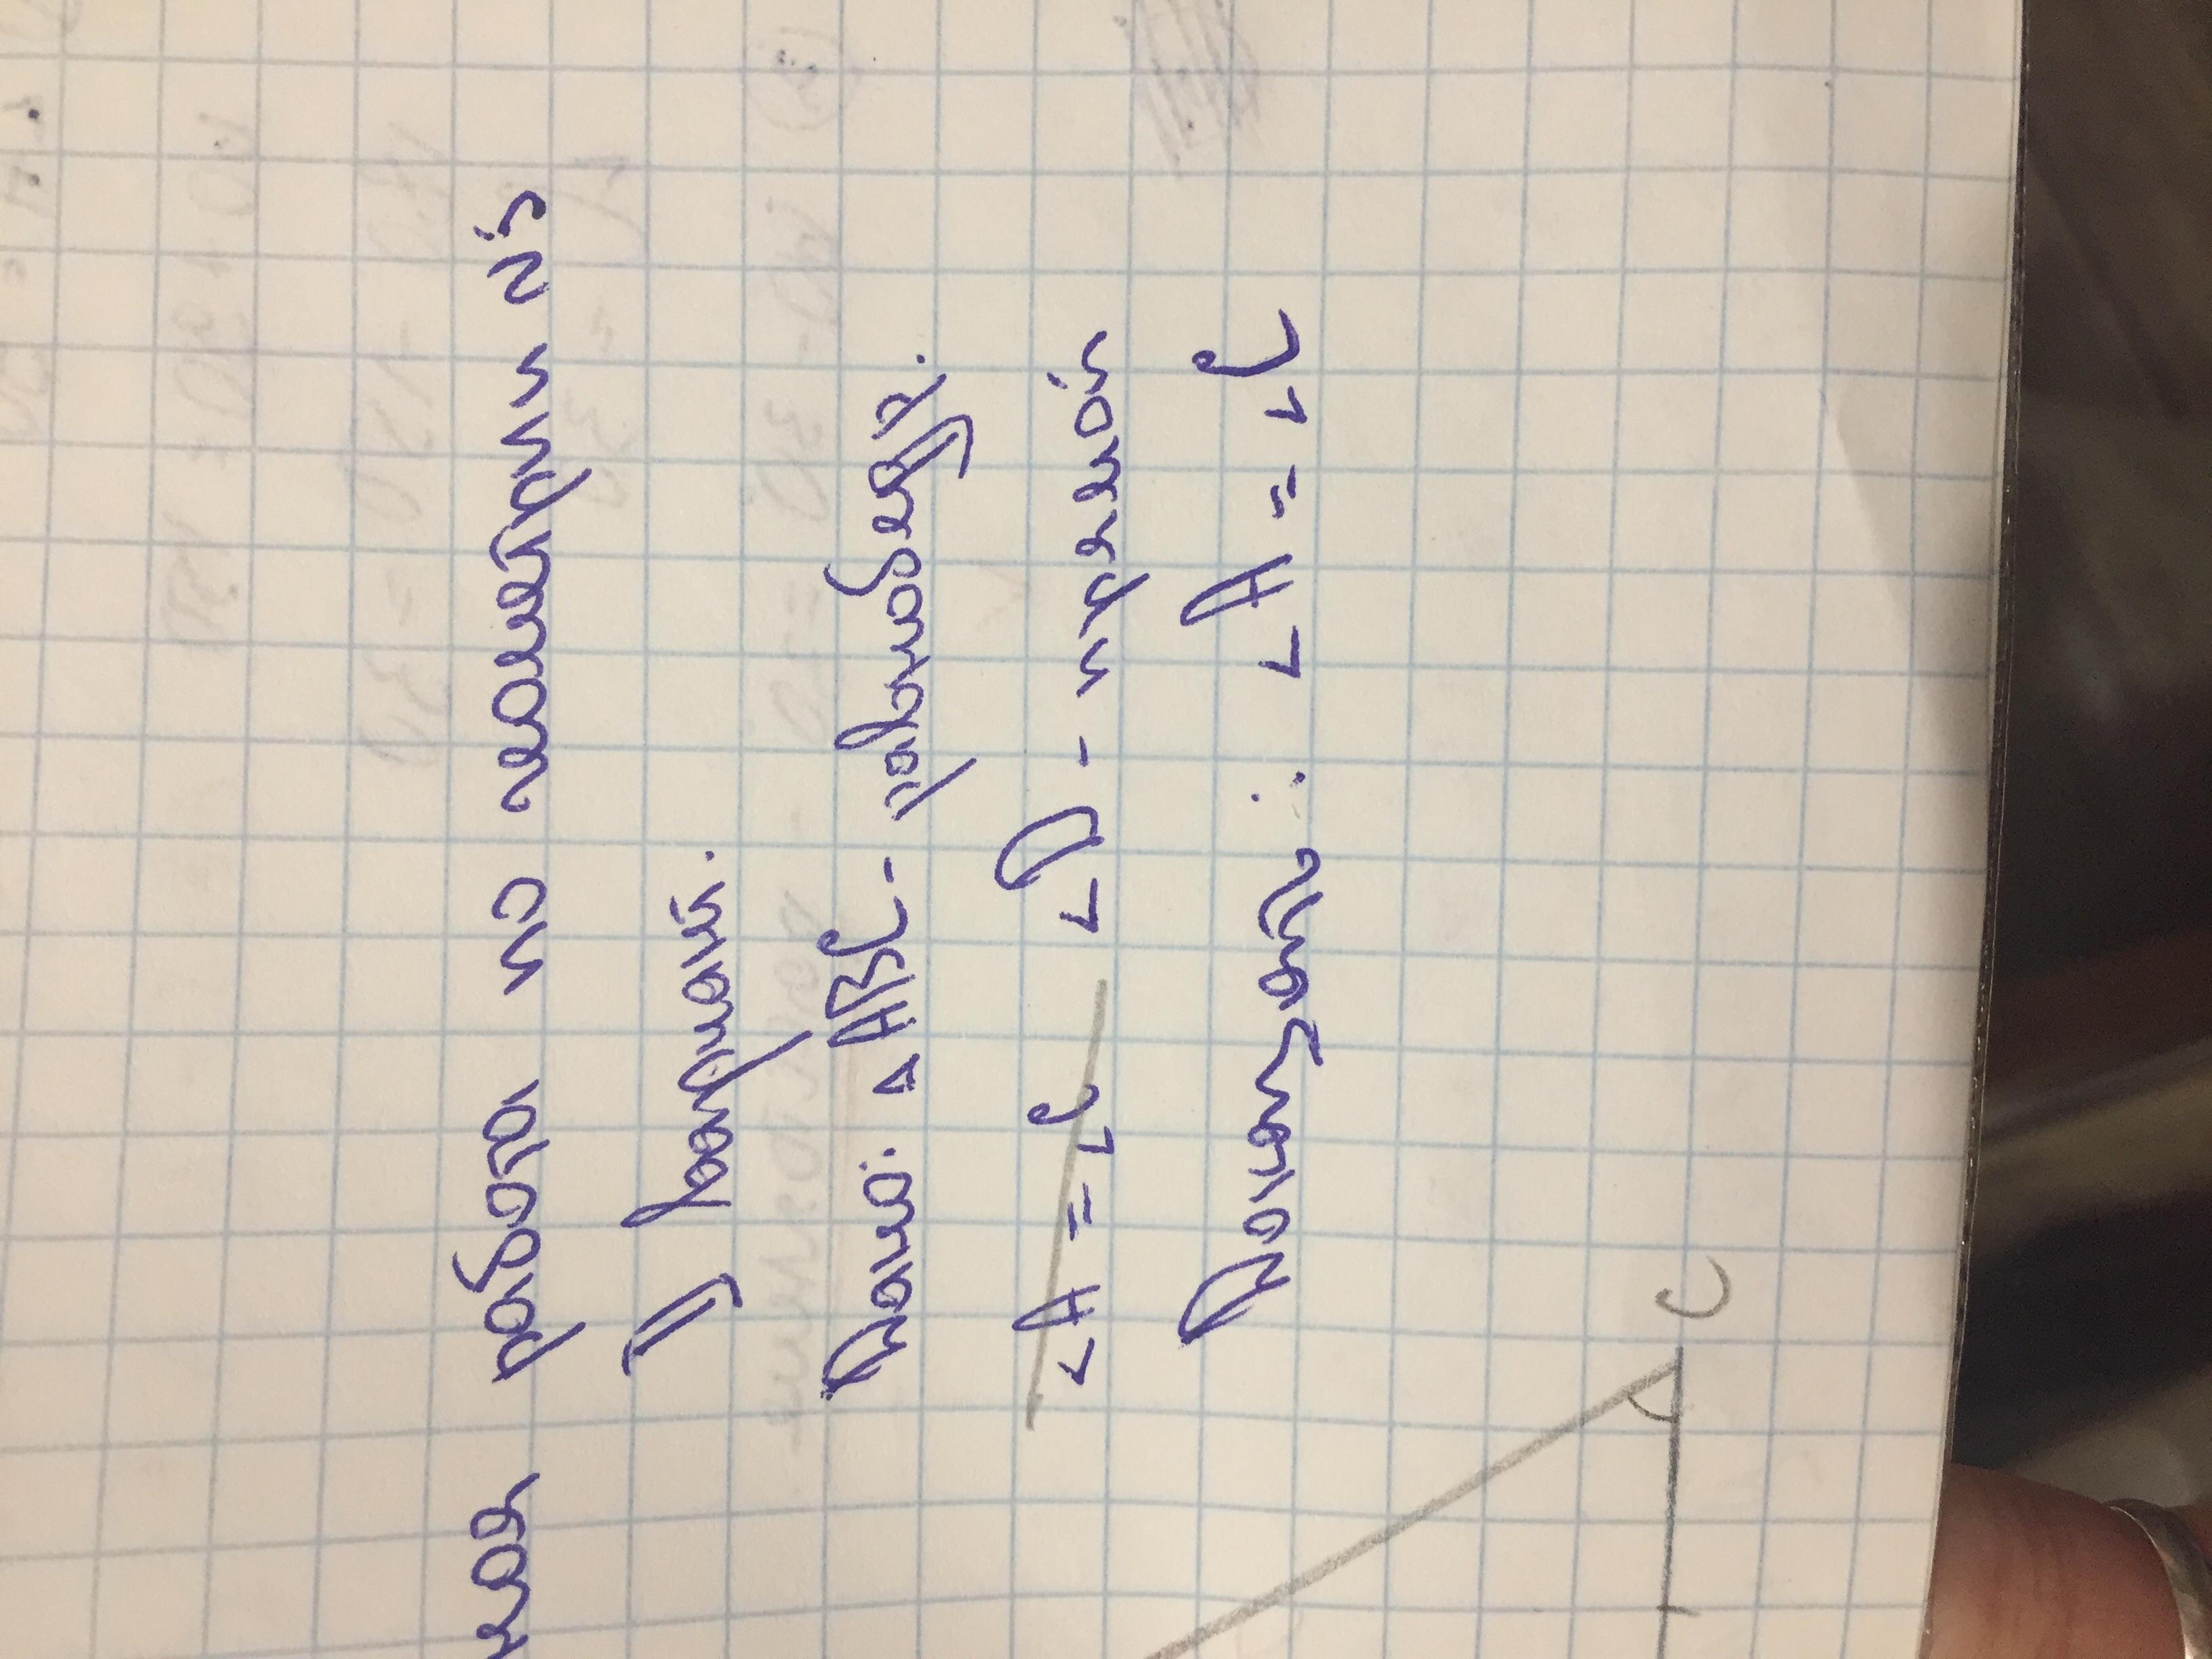 ная работа по геометрии №5
II вариант.
Дано: △ABC - равнобедр.
∠A = ∠C ∠D - прямой
Доказать: ∠A = ∠C
C